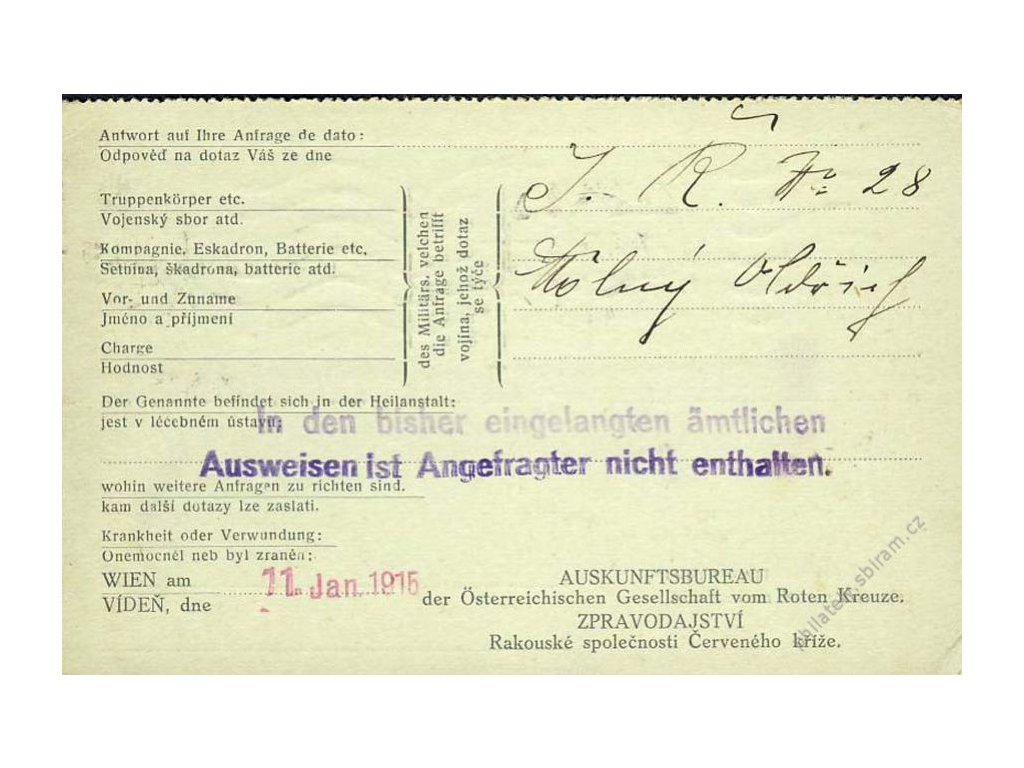 Antwort auf Ihre Anfrage de dato:
Odpověď na dotaz Váš ze dne
Truppenkörper etc.
Vojenský sbor atd.
Kompagnie, Eskadron, Batterie etc.
Setnina, škadrona, batterie atd.
Vor- und Zuname
Jméno a příjmení
Charge
Hodnost
des Militärs, welchen
die Anfrage betrifft
vojína, jehož dotaz
se týče
J. R. No 28
Oldřich
Der Genannte befindet sich in der Heilanstalt:
jest v lécebném ústavu:
In den bisher eingelangten ämtlichen
Ausweisen ist Angefragter nicht enthalten.
wohin weitere Anfragen zu richten sind.
kam další dotazy lze zaslati.
Krankheit oder Verwundung:
Onemocněl neb byl zraněn:
WIEN am
VÍDEŇ, dne
11. Jan. 1915
AUSKUNFTSBUREAU
der Österreichischen Gesellschaft vom Roten Kreuze.
ZPRAVODAJSTVÍ
Rakouské společnosti Červeného kříže.
philatelie.sbiram.cz